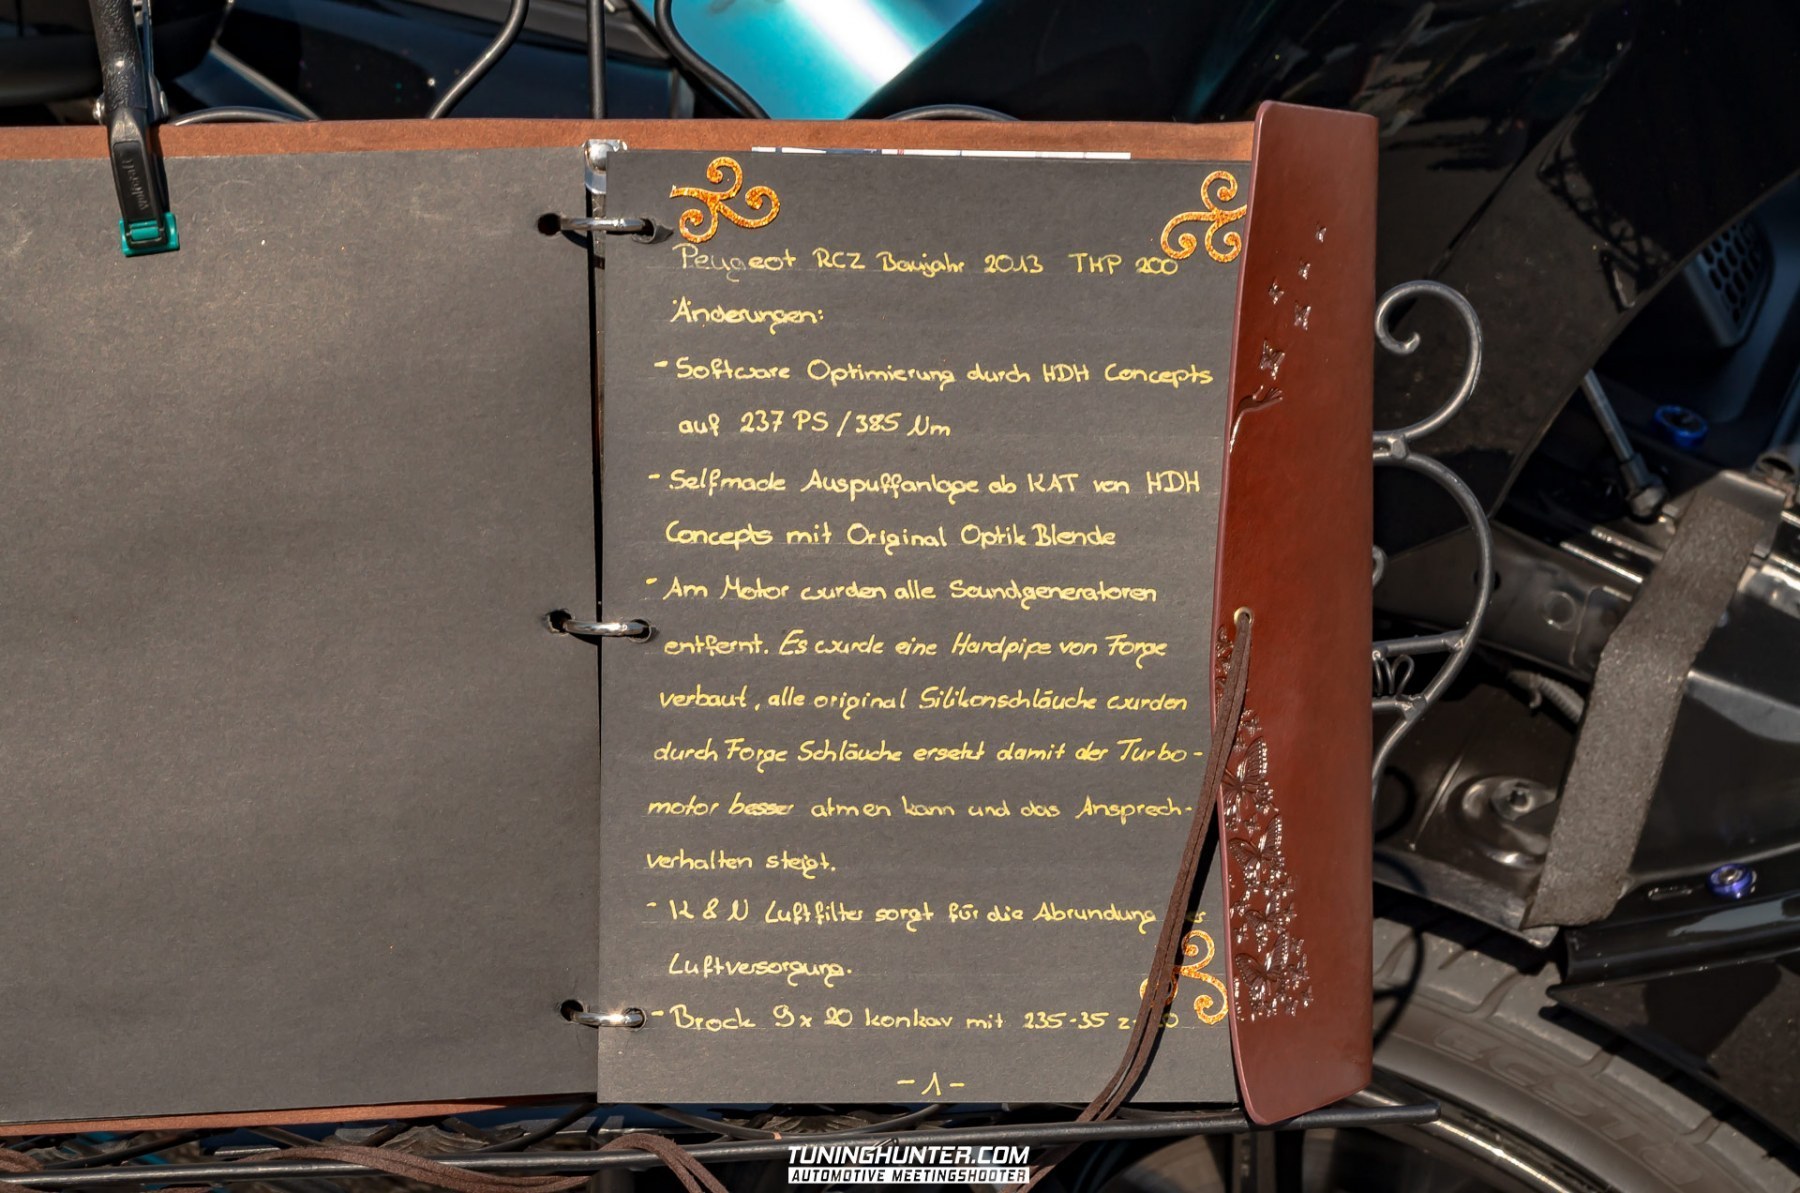 Peugeot RCZ Baujahr 2013 THP 200
Änderungen:
- Software Optimierung durch HDH Concepts
auf 237 PS / 385 Nm
- Selfmade Auspuffanlage ab KAT von HDH
Concepts mit Original Optik Blende
- Am Motor wurden alle Soundgeneratoren
entfernt. Es wurde eine Hardpipe von Forge
verbaut, alle original Silikonschläuche wurden
durch Forge Schläuche ersetzt damit der Turbo-
motor besser atmen kann und das Ansprech-
verhalten steigt.
- K & N Luftfilter sorgt für die Abrundung
Luftversorgung.
- Brock 9x20 konkav mit 235-35
- 1 -
TUNINGHUNTER.COM
AUTOMOTIVE MEETINGSHOOTER